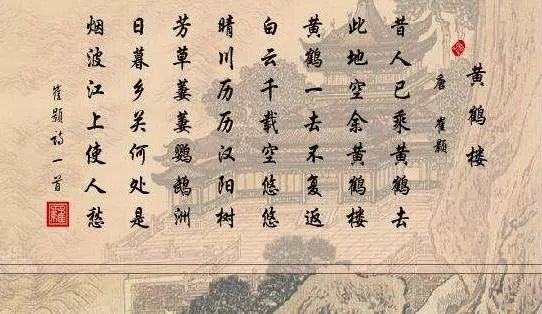 黄鹤楼
唐 崔颢
昔人已乘黄鹤去
此地空余黄鹤楼
黄鹤一去不复返
白云千载空悠悠
晴川历历汉阳树
芳草萋萋鹦鹉洲
日暮乡关何处是
烟波江上使人愁
崔颢诗一首